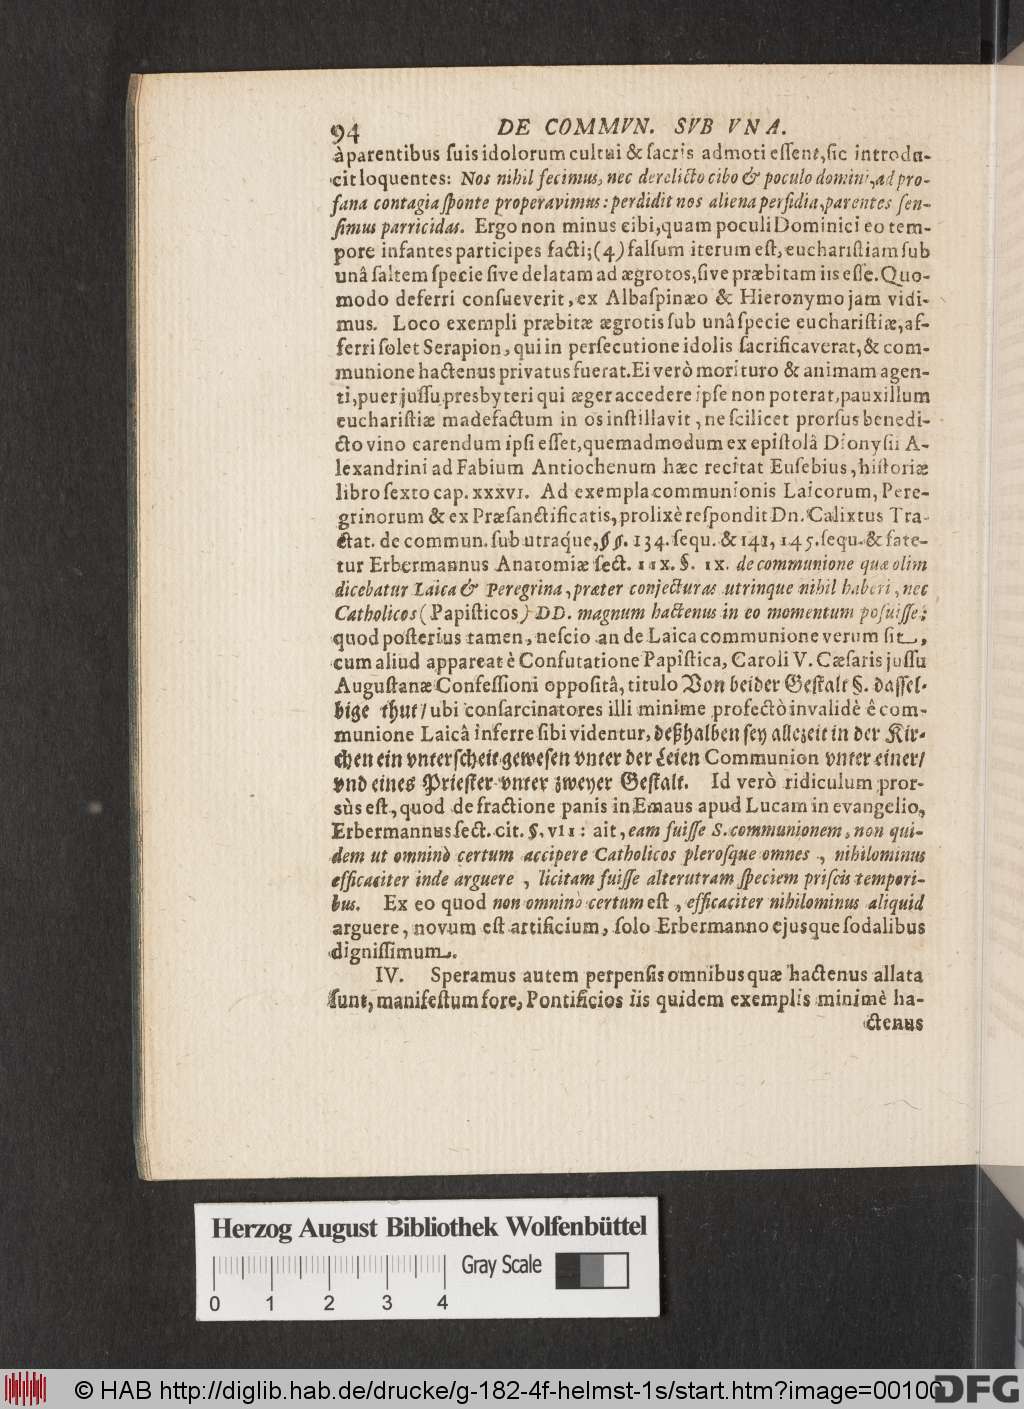 94 DE COMMVN. SVB VNA.
à parentibus ſuis idolorum cultui & ſacris admoti eſſent, ſic introdu-
cit loquentes: Nos nihil fecimus, nec derelicto cibo & poculo domini, ad pro-
fana contagia ſponte properavimus: perdidit nos aliena perfidia, parentes ſen-
ſimus parricidas. Ergo non minus cibi, quam poculi Dominici eo tem-
pore infantes participes facti; (4) falſum iterum eſt, euchariſtiam ſub
unâ ſaltem ſpecie ſive delatam ad ægrotos, ſive præbitam iis eſſe. Quo-
modo deferri conſueverit, ex Albaſpinæo & Hieronymo jam vidi-
mus. Loco exempli præbitæ ægrotis ſub unâ ſpecie euchariſtiæ, af-
ferri ſolet Serapion, qui in perſecutione idolis ſacrificaverat, & com-
munione hactenus privatus fuerat. Ei verò morituro & animam agen-
ti, puer juſſu presbyteri qui æger accedere ipſe non poterat, pauxillum
euchariſtiæ madefactum in os inſtillavit, ne ſcilicet prorſus benedi-
cto vino carendum ipſi eſſet, quemadmodum ex epiſtolâ Dionyſii A-
lexandrini ad Fabium Antiochenum hæc recitat Euſebius, hiſtoriæ
libro ſexto cap. XXXVI. Ad exempla communionis Laicorum, Pere-
grinorum & ex Præſanctificatis, prolixè reſpondit Dn. Calixtus Tra-
ctat. de commun. ſub utraque, §§. 134. ſequ. & 141, 145. ſequ. & fate-
tur Erbermannus Anatomiæ ſect. IIX. §. IX. de communione quæ olim
dicebatur Laica & Peregrina, præter conjecturas utrinque nihil haberi, nec
Catholicos (Papiſticos) DD. magnum hactenus in eo momentum poſuiſſe;
quod poſterius tamen, neſcio an de Laica communione verum ſit,
cum aliud appareat è Confutatione Papiſtica, Caroli V. Cæſaris juſſu
Auguſtanæ Confeſſioni oppoſitâ, titulo Von beider Geſtalt §. daſſel-
bige thut / ubi conſarcinatores illi minime profectò invalidè ê com-
munione Laicâ inferre ſibi videntur, deßhalben ſey allezeit in der Kir-
chen ein vnterſcheit geweſen vnter der Leien Communion vnter einer /
vnd eines Prieſter vnter zweyer Geſtalt. Id verò ridiculum pror-
sùs eſt, quod de fractione panis in Emaus apud Lucam in evangelio,
Erbermannus ſect. cit. §. VII: ait, eam fuiſſe S. communionem, non qui-
dem ut omninò certum accipere Catholicos pleroſque omnes, nihilominus
efficaciter inde arguere, licitam fuiſſe alterutram ſpeciem priſcis tempori-
bus. Ex eo quod non omninò certum eſt, efficaciter nihilominus aliquid
arguere, novum eſt artificium, ſolo Erbermanno ejusque ſodalibus
digniſſimum.
IV. Speramus autem perpenſis omnibus quæ hactenus allata
ſunt, manifeſtum fore, Pontificios iis quidem exemplis minimè ha-
ctenus
Herzog August Bibliothek Wolfenbüttel
Gray Scale
0 1 2 3 4
© HAB http://diglib.hab.de/drucke/g-182-4f-helmst-1s/start.htm?image=00100
DFG